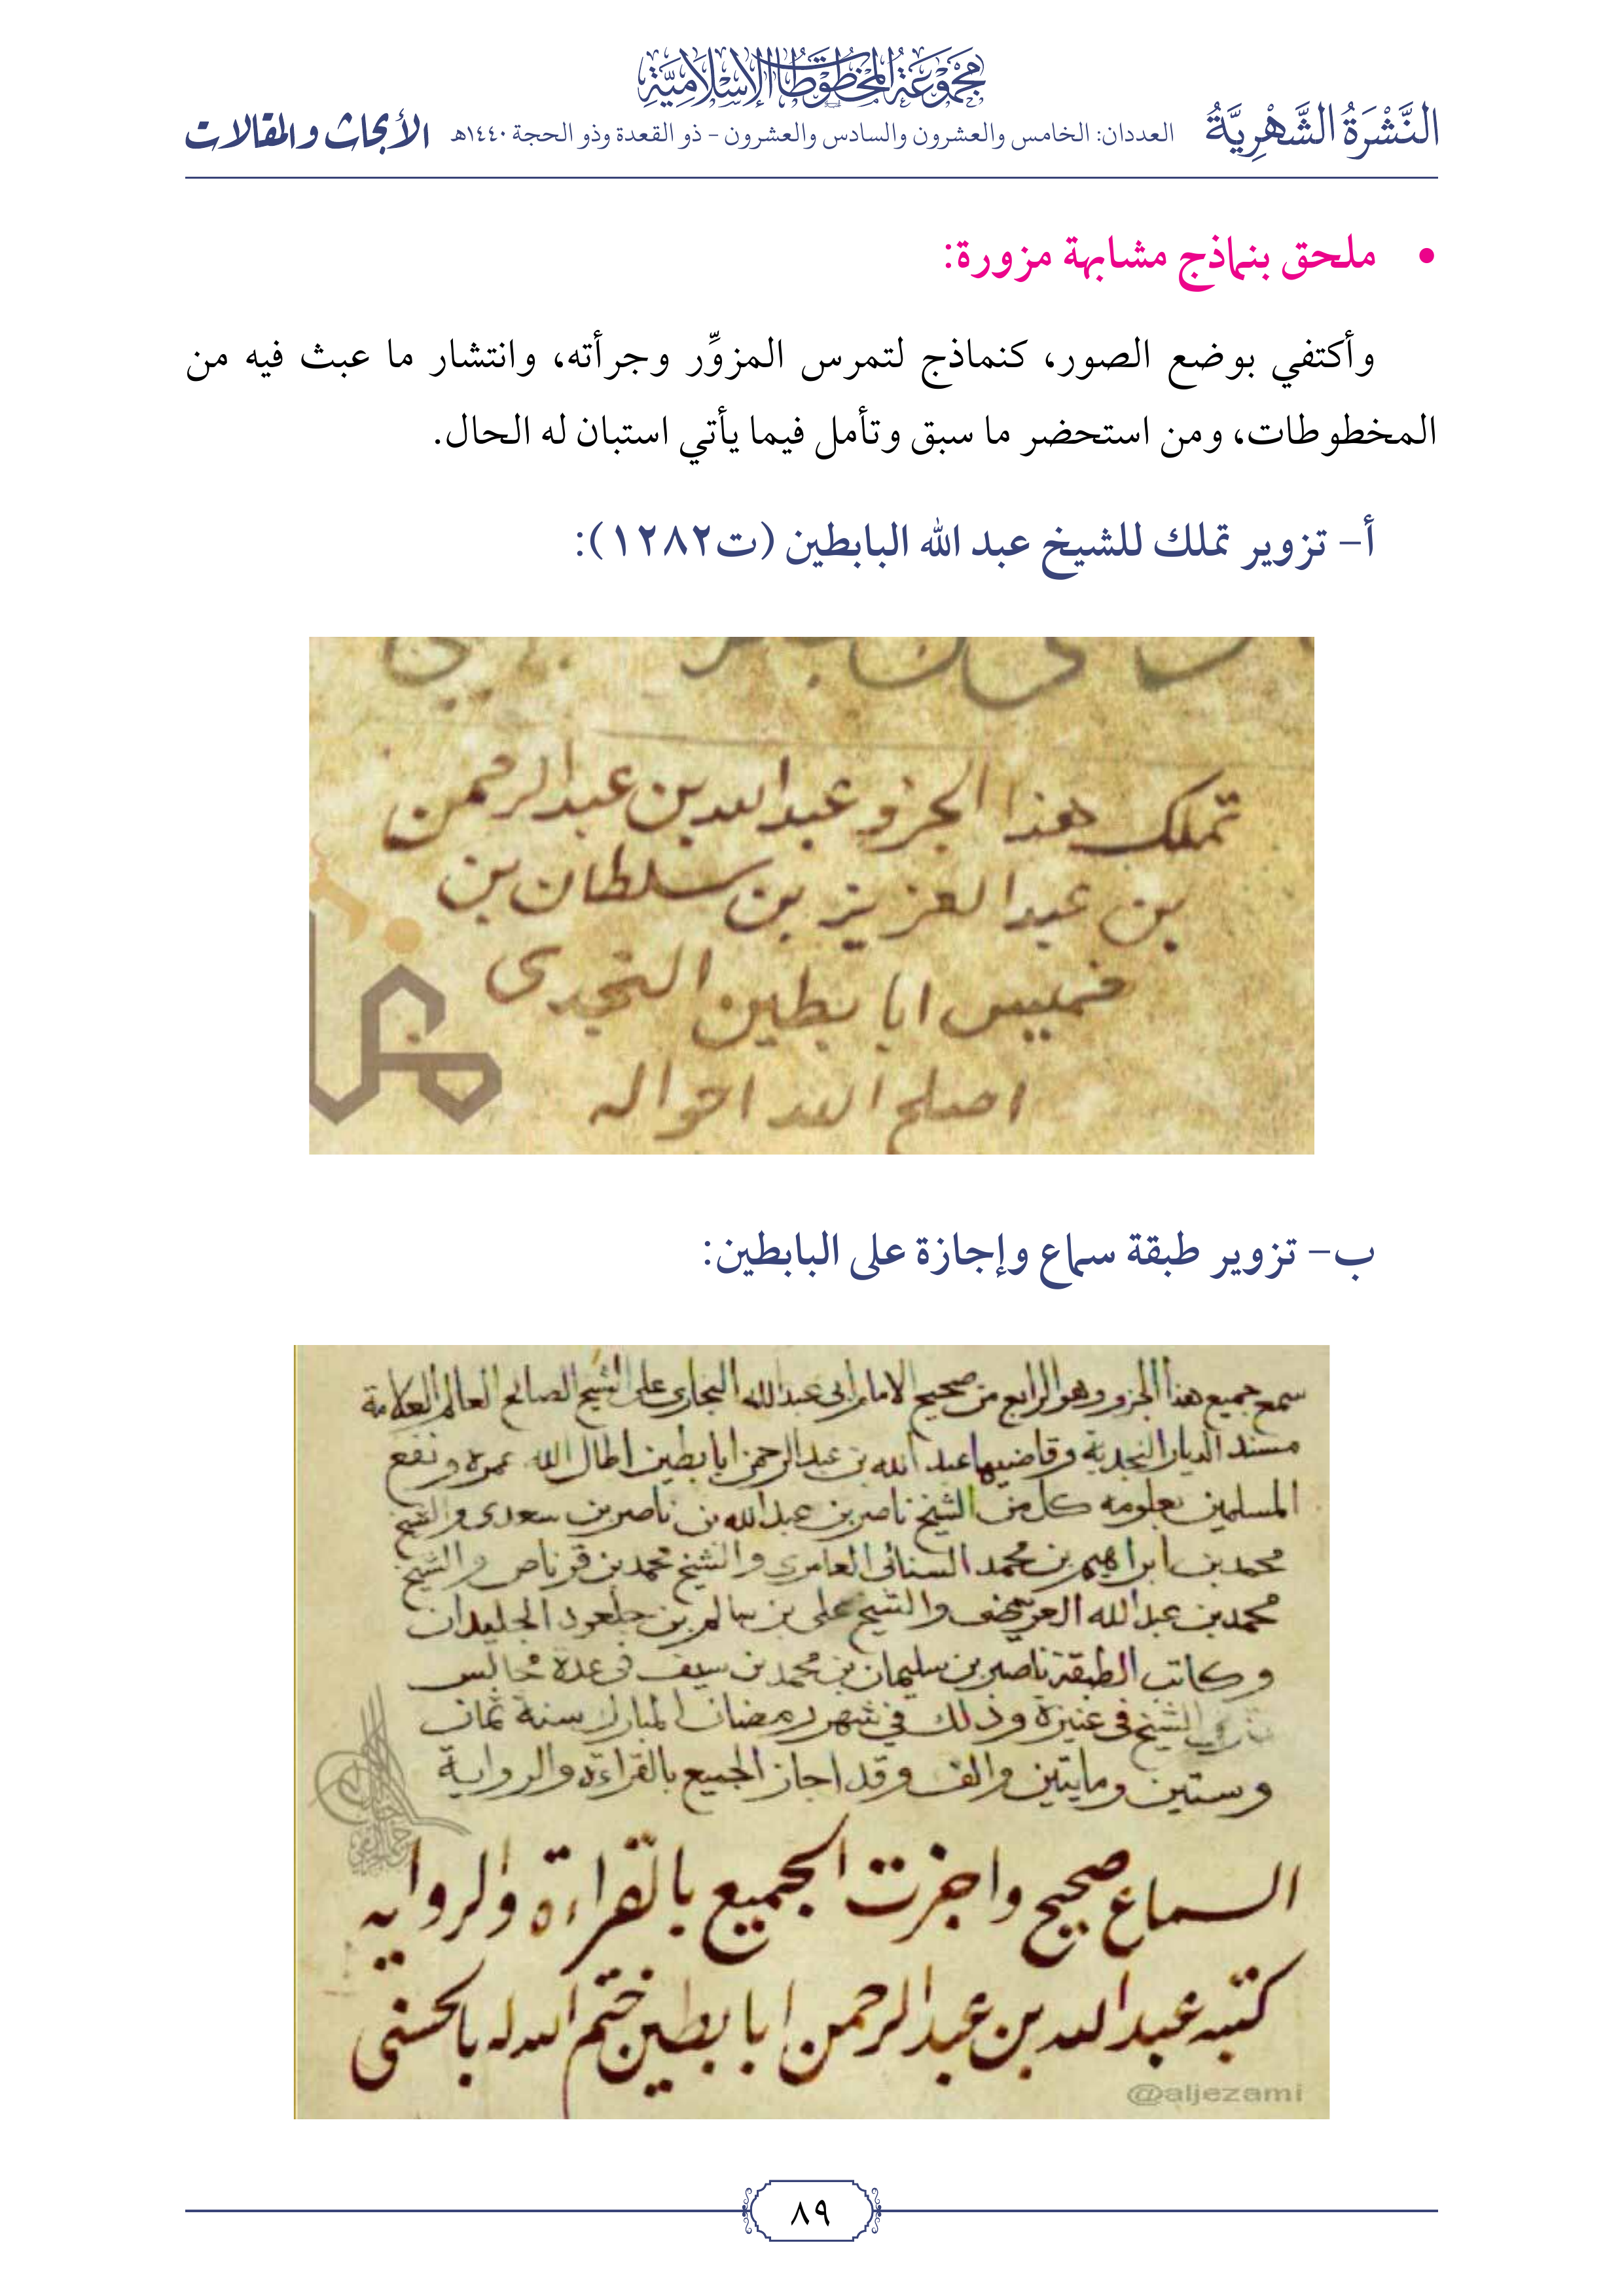 مجموعة المخطوطات الإسلامية
النَّشْرَةُ الشَّهْرِيَّةُ
العددان: الخامس والعشرون والسادس والعشرون – ذو القعدة وذو الحجة ١٤٤٠هـ
الأبحاث والمقالات
• ملحق بنماذج مشابهة مزورة:
وأكتفي بوضع الصور، كنماذج لتمرس المزوِّر وجرأته، وانتشار ما عبث فيه من
المخطوطات، ومن استحضر ما سبق وتأمل فيما يأتي استبان له الحال.
أ– تزوير تملك للشيخ عبد الله البابطين (ت١٢٨٢):
تملك هذا الجزو عبد الله بن عبد الرحمن
بن عبد العزيز بن سلطان بن
خميس ابا بطين النجدى
اصلح الله احواله
ب– تزوير طبقة سماع وإجازة على البابطين:
سمع جميع هذا الجزو وهو الرابع من صحيح الامام ابى عبد الله البخارى على الشيخ الصالح العالم العلامة
مسند الديار النجدية وقاضيها عبد الله بن عبد الرحمن ابا بطين اطال الله عمره ونفع
المسلمين بعلومه كل من الشيخ ناصر بن عبد الله بن ناصر بن سعدى والشيخ
محمد بن ابراهيم بن محمد السنانى العامرى والشيخ محمد بن قرناص والشيخ
محمد بن عبد الله العريفى والشيخ على بن سالم بن جلعود الجليدان
وكاتب الطبقة ناصر بن سليمان بن محمد بن سيف فى عدة مجالس
الشيخ فى عنيزة وذلك في شهر رمضان المبارك سنة ثمان
وستين ومايتين والف وقد اجاز الجميع بالقراءة والرواية
السماع صحيح واجزت الجميع بالقراءة والرواية
كتبه عبد الله بن عبد الرحمن ابا بطين ختم الله له بالحسنى
@aljezami
٨٩